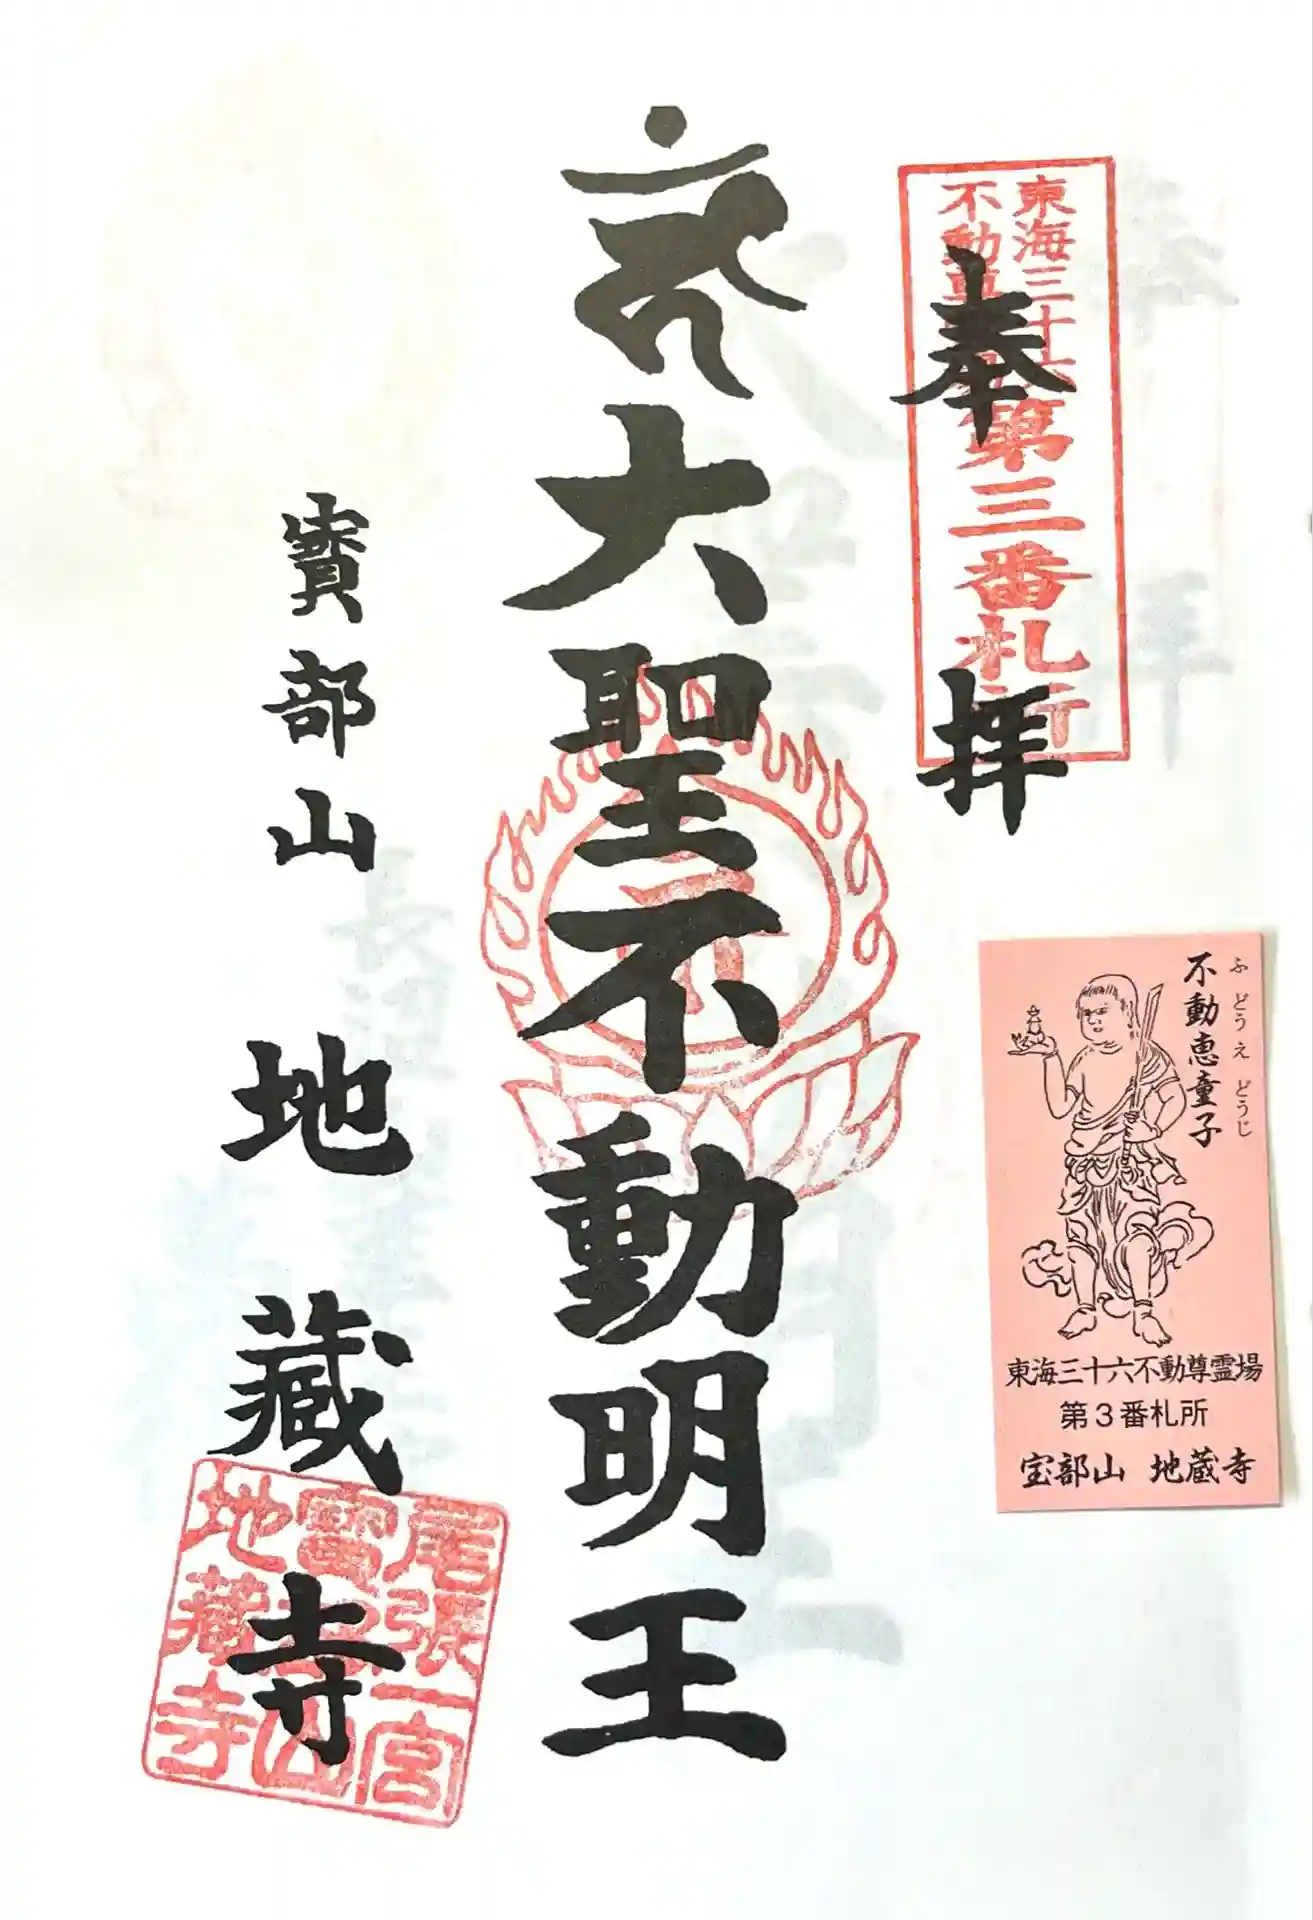 奉拝
東海三十六
不動尊
第三番札所
大聖不動明王
寶部山 地藏寺
尾張一宮
寶部山
地藏寺
不動恵童子
ふどうえどうじ
東海三十六不動尊霊場
第3番札所
宝部山 地蔵寺